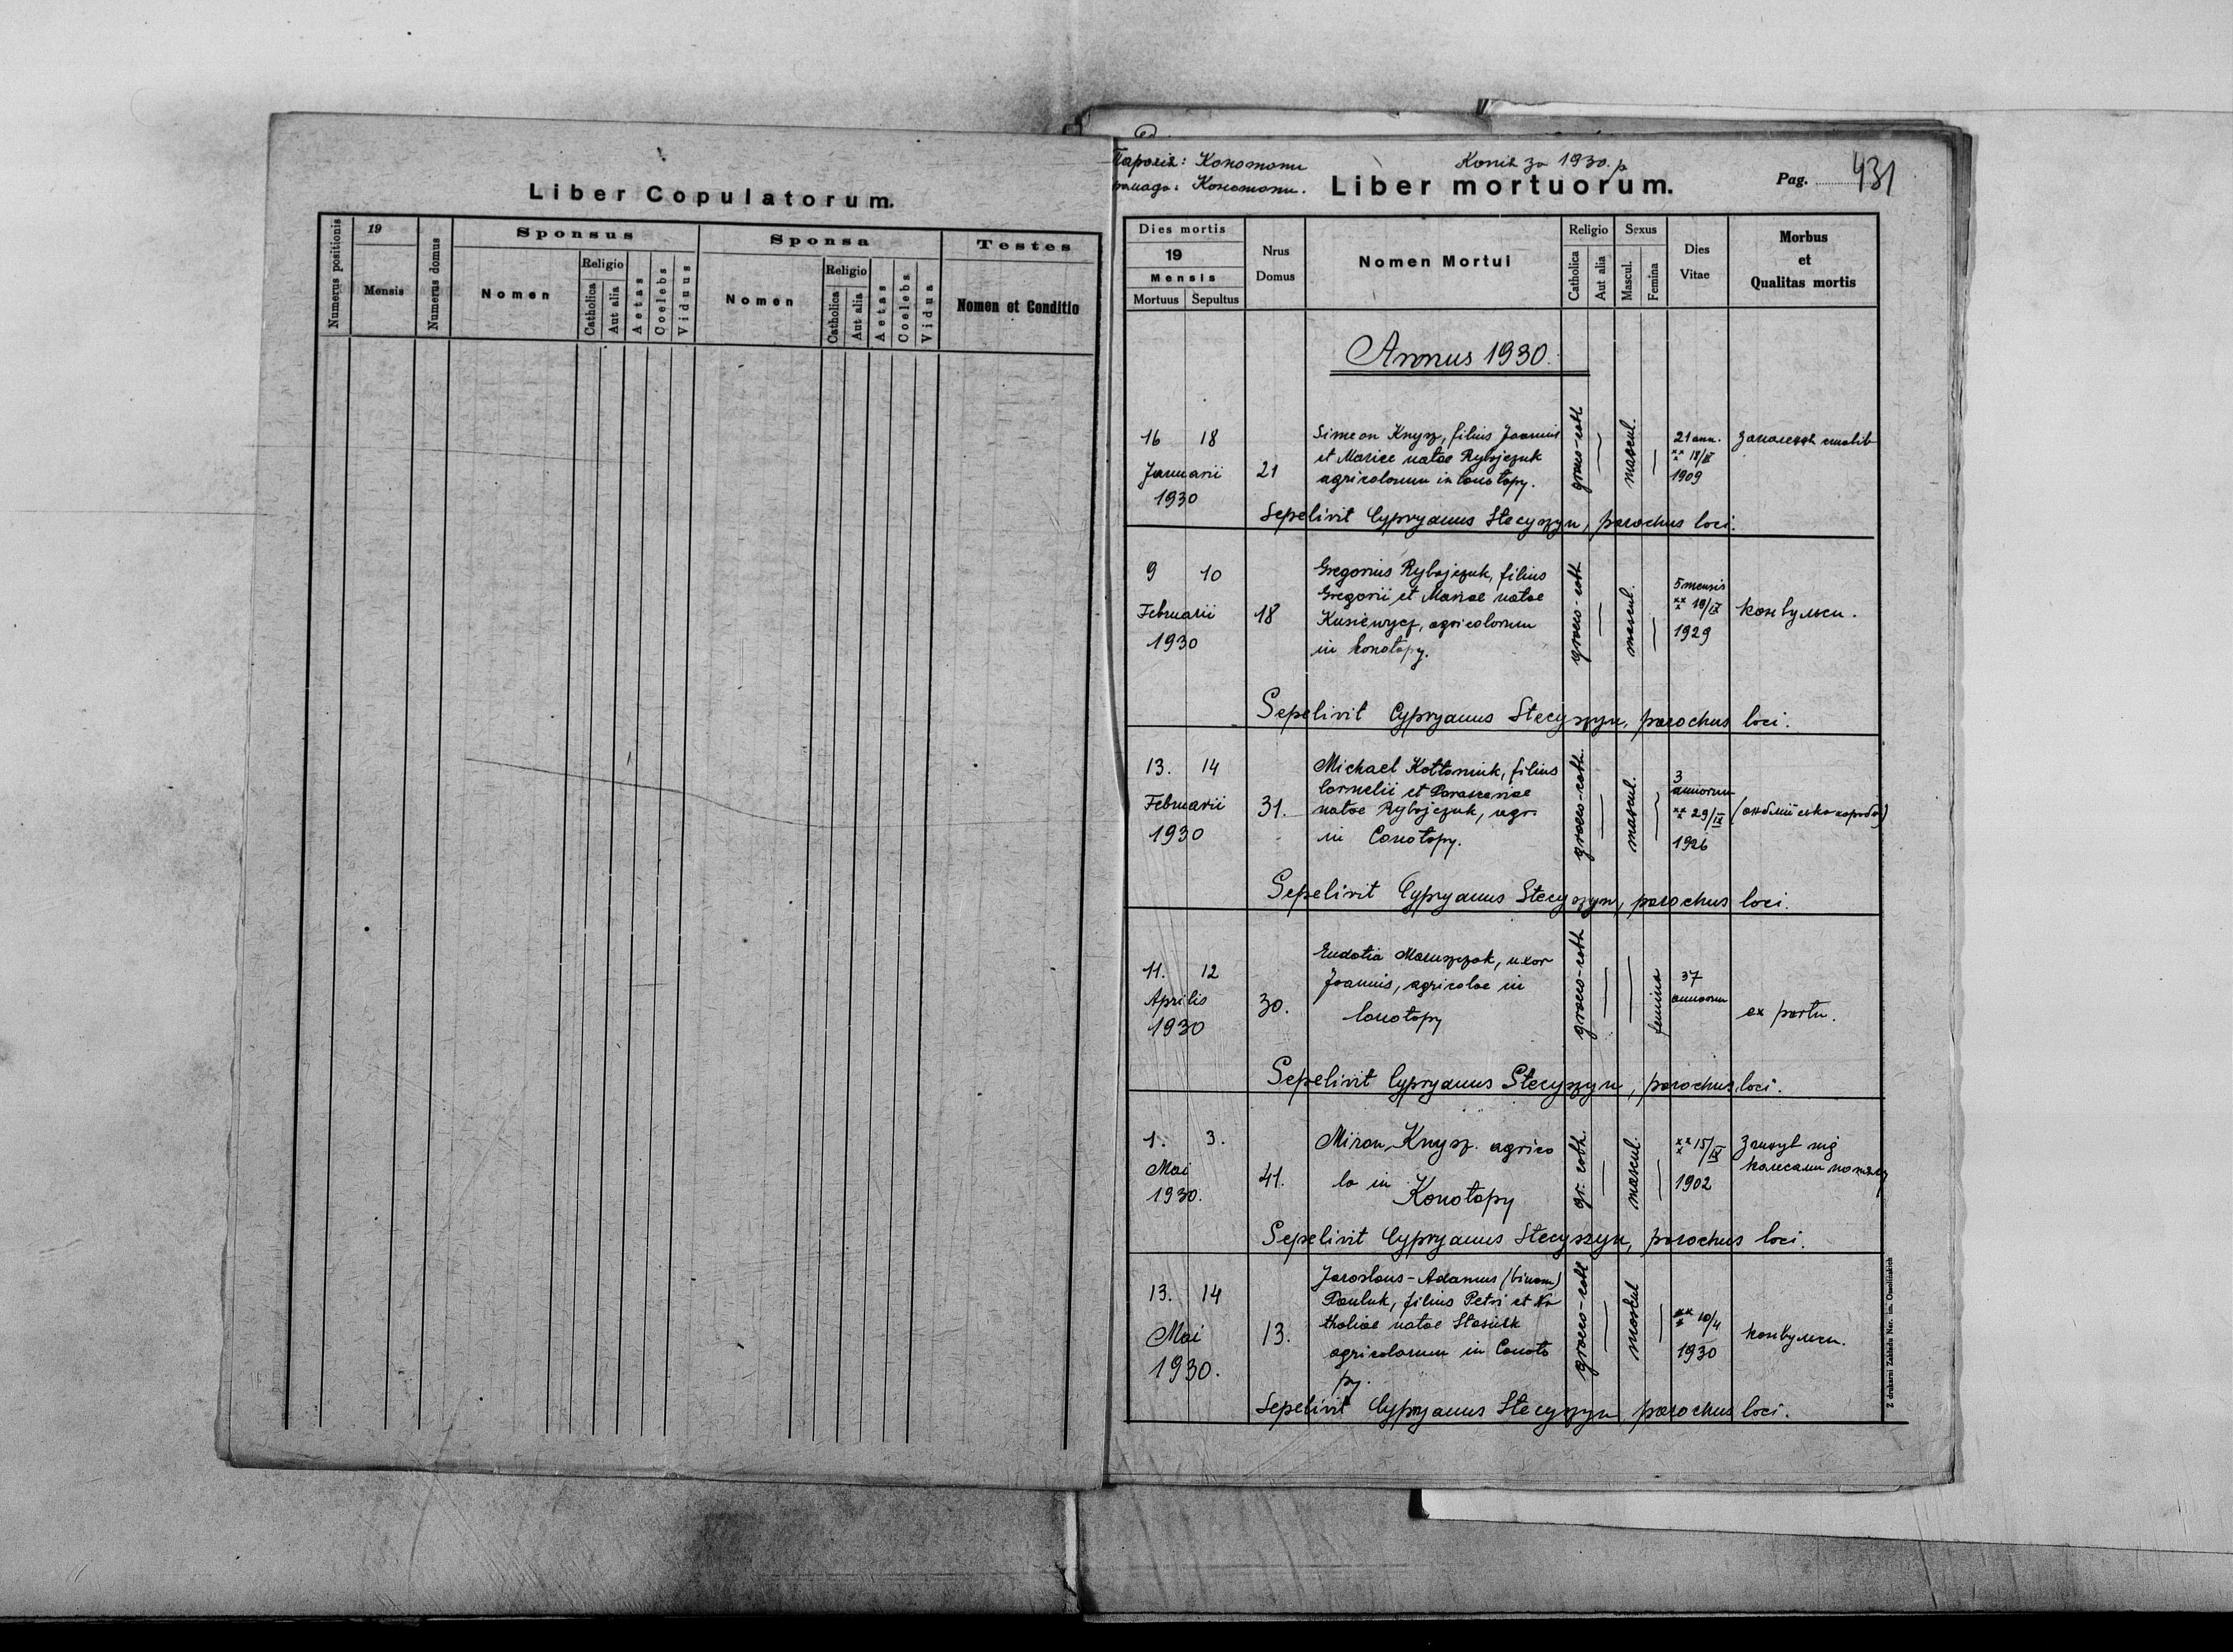 Liber Copulatorum.
Numerus positionis
19
Mensis
Numerus domus
Sponsus
Nomen
Religio
Catholica
Aut alia
Aetas
Coelebs
Viduus
Sponsa
Nomen
Religio
Catholica
Aut alia
Aetas
Coelebs
Vidua
Testes
Nomen et Conditio
Парохія: Конотопи
громада: Конотопи.
Копія за 1930. р
Liber mortuorum.
Pag. 431
Dies mortis
19
Mensis
Mortuus Sepultus
Nrus
Domus
Nomen Mortui
Religio
Catholica
Aut alia
Sexus
Mascul.
Femina
Dies
Vitae
Morbus
et
Qualitas mortis
Annus 1930.
16 18
Januarii
1930
21
Simeon Knysz, filius Joannis
et Mariae natae Rybojczuk
agricolarum in Conotopy.
graeco-cath.
mascul.
21 ann.
18/II
1909
запалення
Sepelivit Cypryanus Stecyszyn, parochus loci.
9 10
Februarii
1930
18
Gregorius Rybojczuk, filius
Gregorii et Mariae natae
Kusiewycz, agricolarum
in Konotopy.
graeco-cath
mascul.
5 mensis
18/IX
1929
конвульси.
Sepelivit Cypryanus Stecyszyn, parochus loci.
13. 14
Februarii
1930
31.
Michael Kottoniuk, filius
Cornelii et Parasceviae
natae Rybojczuk, agr.
in Conotopy.
graeco-cath.
mascul.
3
annorum
29/IX
1926
Sepelivit Cypryanus Stecyszyn, parochus loci.
11. 12
Aprilis
1930
30.
Eudotia Maruszczak, uxor
Joannis, agricolae in
Conotopy
graeco-cath
femina
37
annorum
ex partu.
Sepelivit Cypryanus Stecyszyn, parochus loci.
1. 3.
Mai
1930.
41.
Miron Knysz. agrico
la in
Konotopy
gr. cath.
mascul.
15/IX
1902
згинув під
колесами
Sepelivit Cypryanus Stecyszyn, parochus loci.
13. 14
Mai
1930.
13.
Jaroslaus-Adamus (binom)
Pauluk, filius Petri et Na
thaliae natae Stasiuk
agricolarum in Conoto
py.
graeco-cath
mascul
10/4
1930
конвульси.
Sepelivit Cypryanus Stecyszyn, parochus loci.
Z drukarni Zakładu Nar. im. Ossolińskich